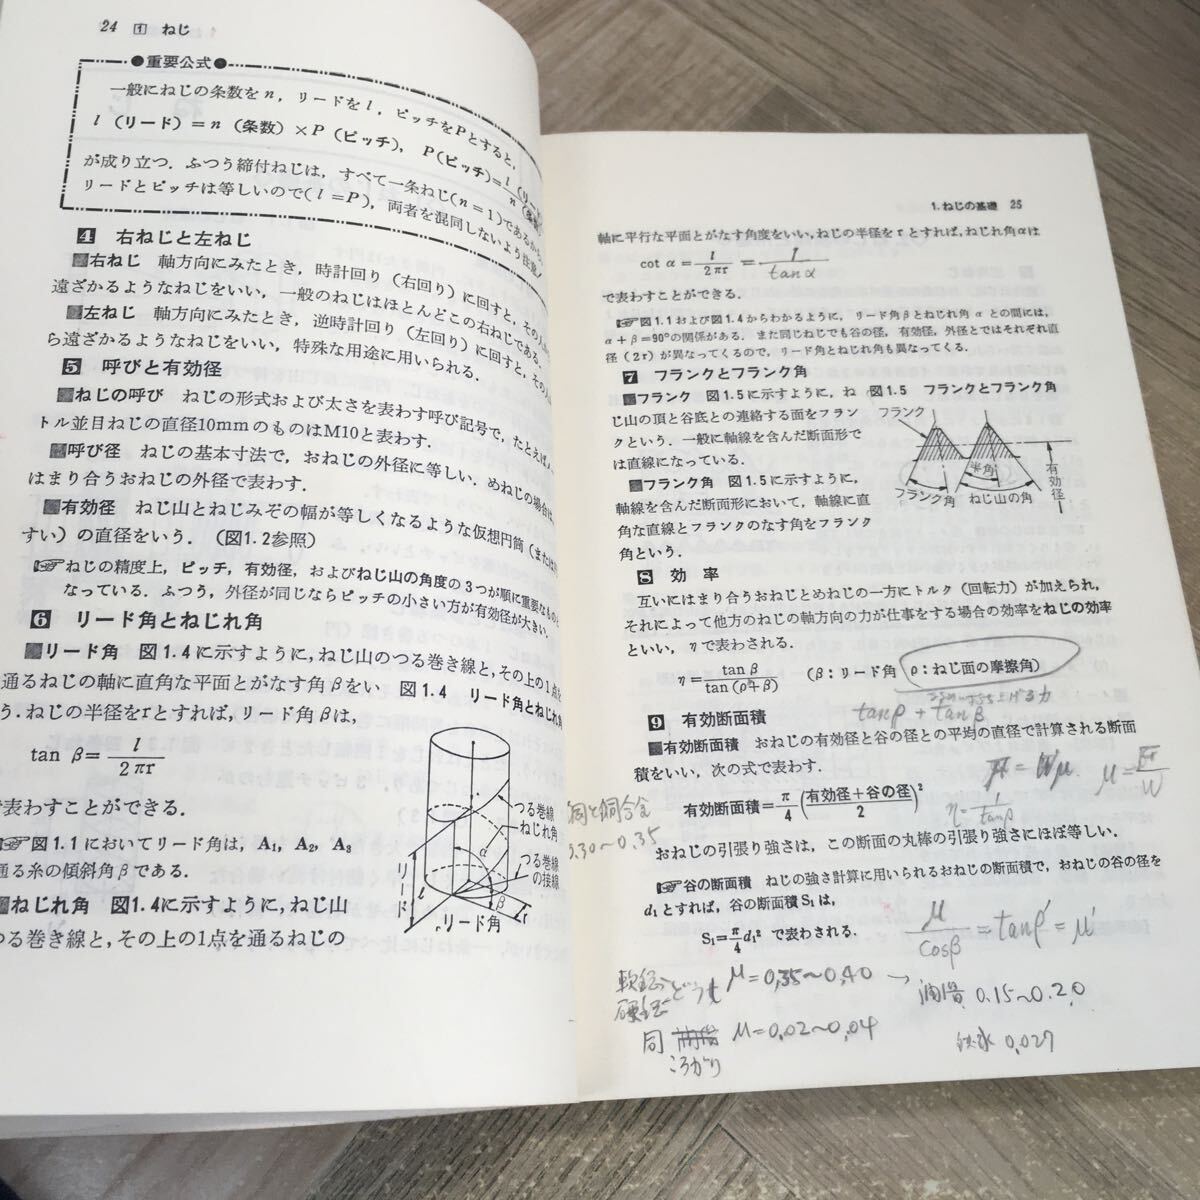 24 1 ねじ
●重要公式●
一般にねじの条数をn，リードをl，ピッチをPとすると，
l（リード）＝n（条数）×P（ピッチ），P（ピッチ）＝l（リード）/n（条数）
が成り立つ．ふつう締付ねじは，すべて一条ねじ(n＝1)であるから，
リードとピッチは等しいので(l＝P)，両者を混同しないよう注意
4 右ねじと左ねじ
右ねじ 軸方向にみたとき，時計回り（右回り）に回すと，その
遠ざかるようなねじをいい，一般のねじはほとんどこの右ねじである．
左ねじ 軸方向にみたとき，逆時計回り（左回り）に回すと，その
ら遠ざかるようなねじをいい，特殊な用途に用いられる．
5 呼びと有効径
ねじの呼び ねじの形式および太さを表わす呼び記号で，たとえばメ
トル並目ねじの直径10mmのものはM10と表わす．
呼び径 ねじの基本寸法で，おねじの外径に等しい．めねじの場合は，
はまり合うおねじの外径で表わす．
有効径 ねじ山とねじみぞの幅が等しくなるような仮想円筒（または
すい）の直径をいう．（図1.2参照）
☞ねじの精度上，ピッチ，有効径，およびねじ山の角度の3つが順に重要なもの
なっている．ふつう，外径が同じならピッチの小さい方が有効径が大きい．
6 リード角とねじれ角
リード角 図1.4に示すように，ねじ山のつる巻き線と，その上の1点を
通るねじの軸に直角な平面とがなす角βをい
う．ねじの半径をrとすれば，リード角βは，
tan β＝l/2πr
で表わすことができる．
☞図1.1においてリード角は，A₁，A₂，A₃
通る糸の傾斜角βである．
ねじれ角 図1.4に示すように，ねじ山
つる巻き線と，その上の1点を通るねじの
図1.4 リード角とねじれ角
つる巻線
ねじれ角
つる巻線
の接線
リード
l
α
β
r
r
リード角
1.ねじの基礎 25
軸に平行な平面とがなす角度をいい，ねじの半径をrとすれば，ねじれ角αは
cot α＝l/2πr ＝ 1/tanα
で表わすことができる．
☞図1.1および図1.4からわかるように，リード角βとねじれ角αとの間には，
α＋β＝90°の関係がある．また同じねじでも谷の径，有効径，外径とではそれぞれ直
径（2r）が異なってくるので，リード角とねじれ角も異なってくる．
7 フランクとフランク角
フランク 図1.5に示すように，ね
じ山の頂と谷底との連絡する面をフラン
クという．一般に軸線を含んだ断面形で
は直線になっている．
フランク角 図1.5に示すように，
軸線を含んだ断面形において，軸線に直
角な直線とフランクのなす角をフランク
角という．
図1.5 フランクとフランク角
フランク
半角
フランク角
ねじ山の角
有効径
8 効 率
互いにはまり合うおねじとめねじの一方にトルク（回転力）が加えられ，
それによって他方のねじの軸方向の力が仕事をする場合の効率をねじの効率
といい，ηで表わされる．
η＝tan β/tan(ρ＋β) （β：リード角 ρ：ねじ面の摩擦角）
tanρ + tanβ
9 有効断面積
有効断面積 おねじの有効径と谷の径との平均の直径で計算される断面
積をいい，次の式で表わす．
F = Wμ μ = F/W
有効断面積＝π/4（有効径＋谷の径/2）²
おねじの引張り強さは，この断面の丸棒の引張り強さにほぼ等しい．
☞谷の断面積 ねじの強さ計算に用いられるおねじの断面積で，おねじの谷の径を
d₁とすれば，谷の断面積S₁は，
S₁＝π/4 d₁² で表わされる．
μ/cosβ = tanρ' = μ'
銅合金
0.30～0.35
どうし μ=0.35～0.40 → 0.15～0.20
同 ころがり μ=0.02～0.04
0.027